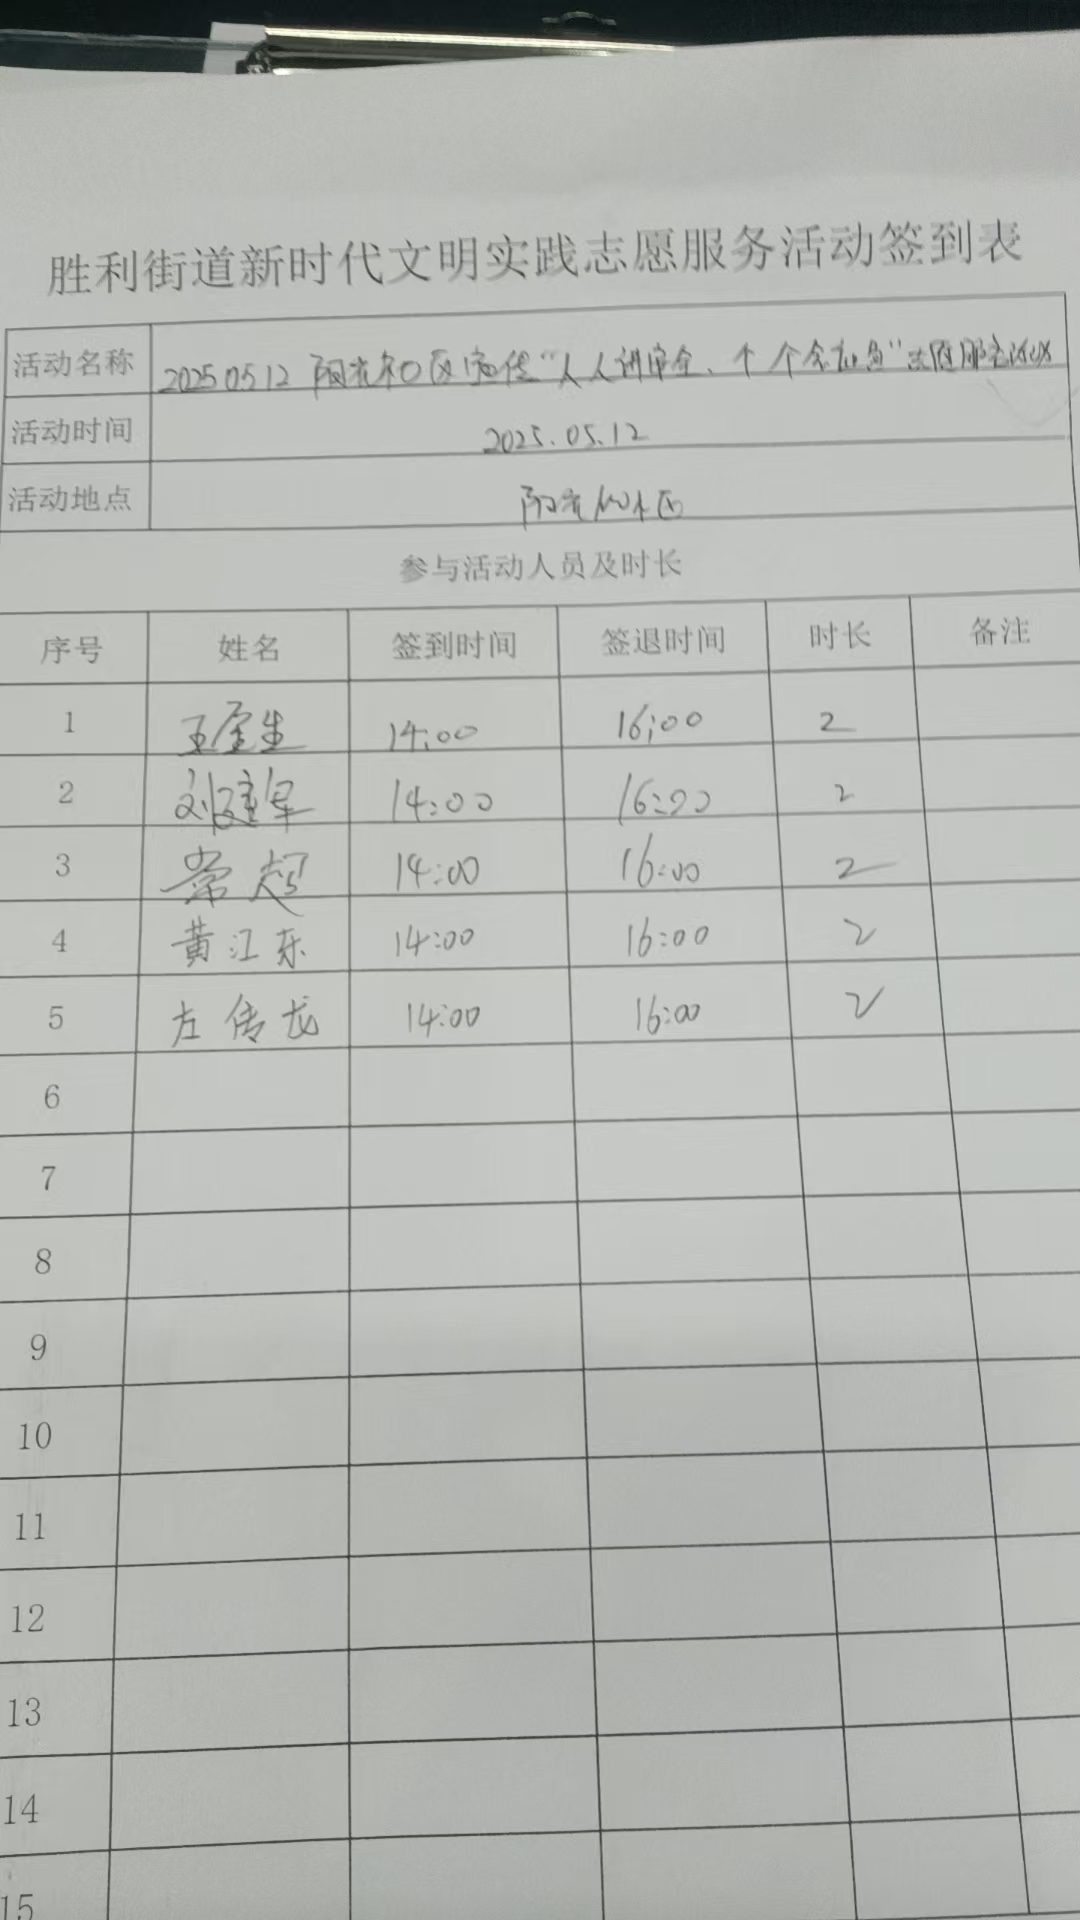 胜利街道新时代文明实践志愿服务活动签到表
活动名称 20250512 阳光社区宣传“人人讲安全、个个会应急”志愿服务活动
活动时间 2025.05.12
活动地点 阳光社区
参与活动人员及时长
序号 姓名 签到时间 签退时间 时长 备注
1 王奎生 14:00 16:00 2
2 刘建军 14:00 16:00 2
3 常超 14:00 16:00 2
4 黄江东 14:00 16:00 2
5 左传龙 14:00 16:00 2
6
7
8
9
10
11
12
13
14
15